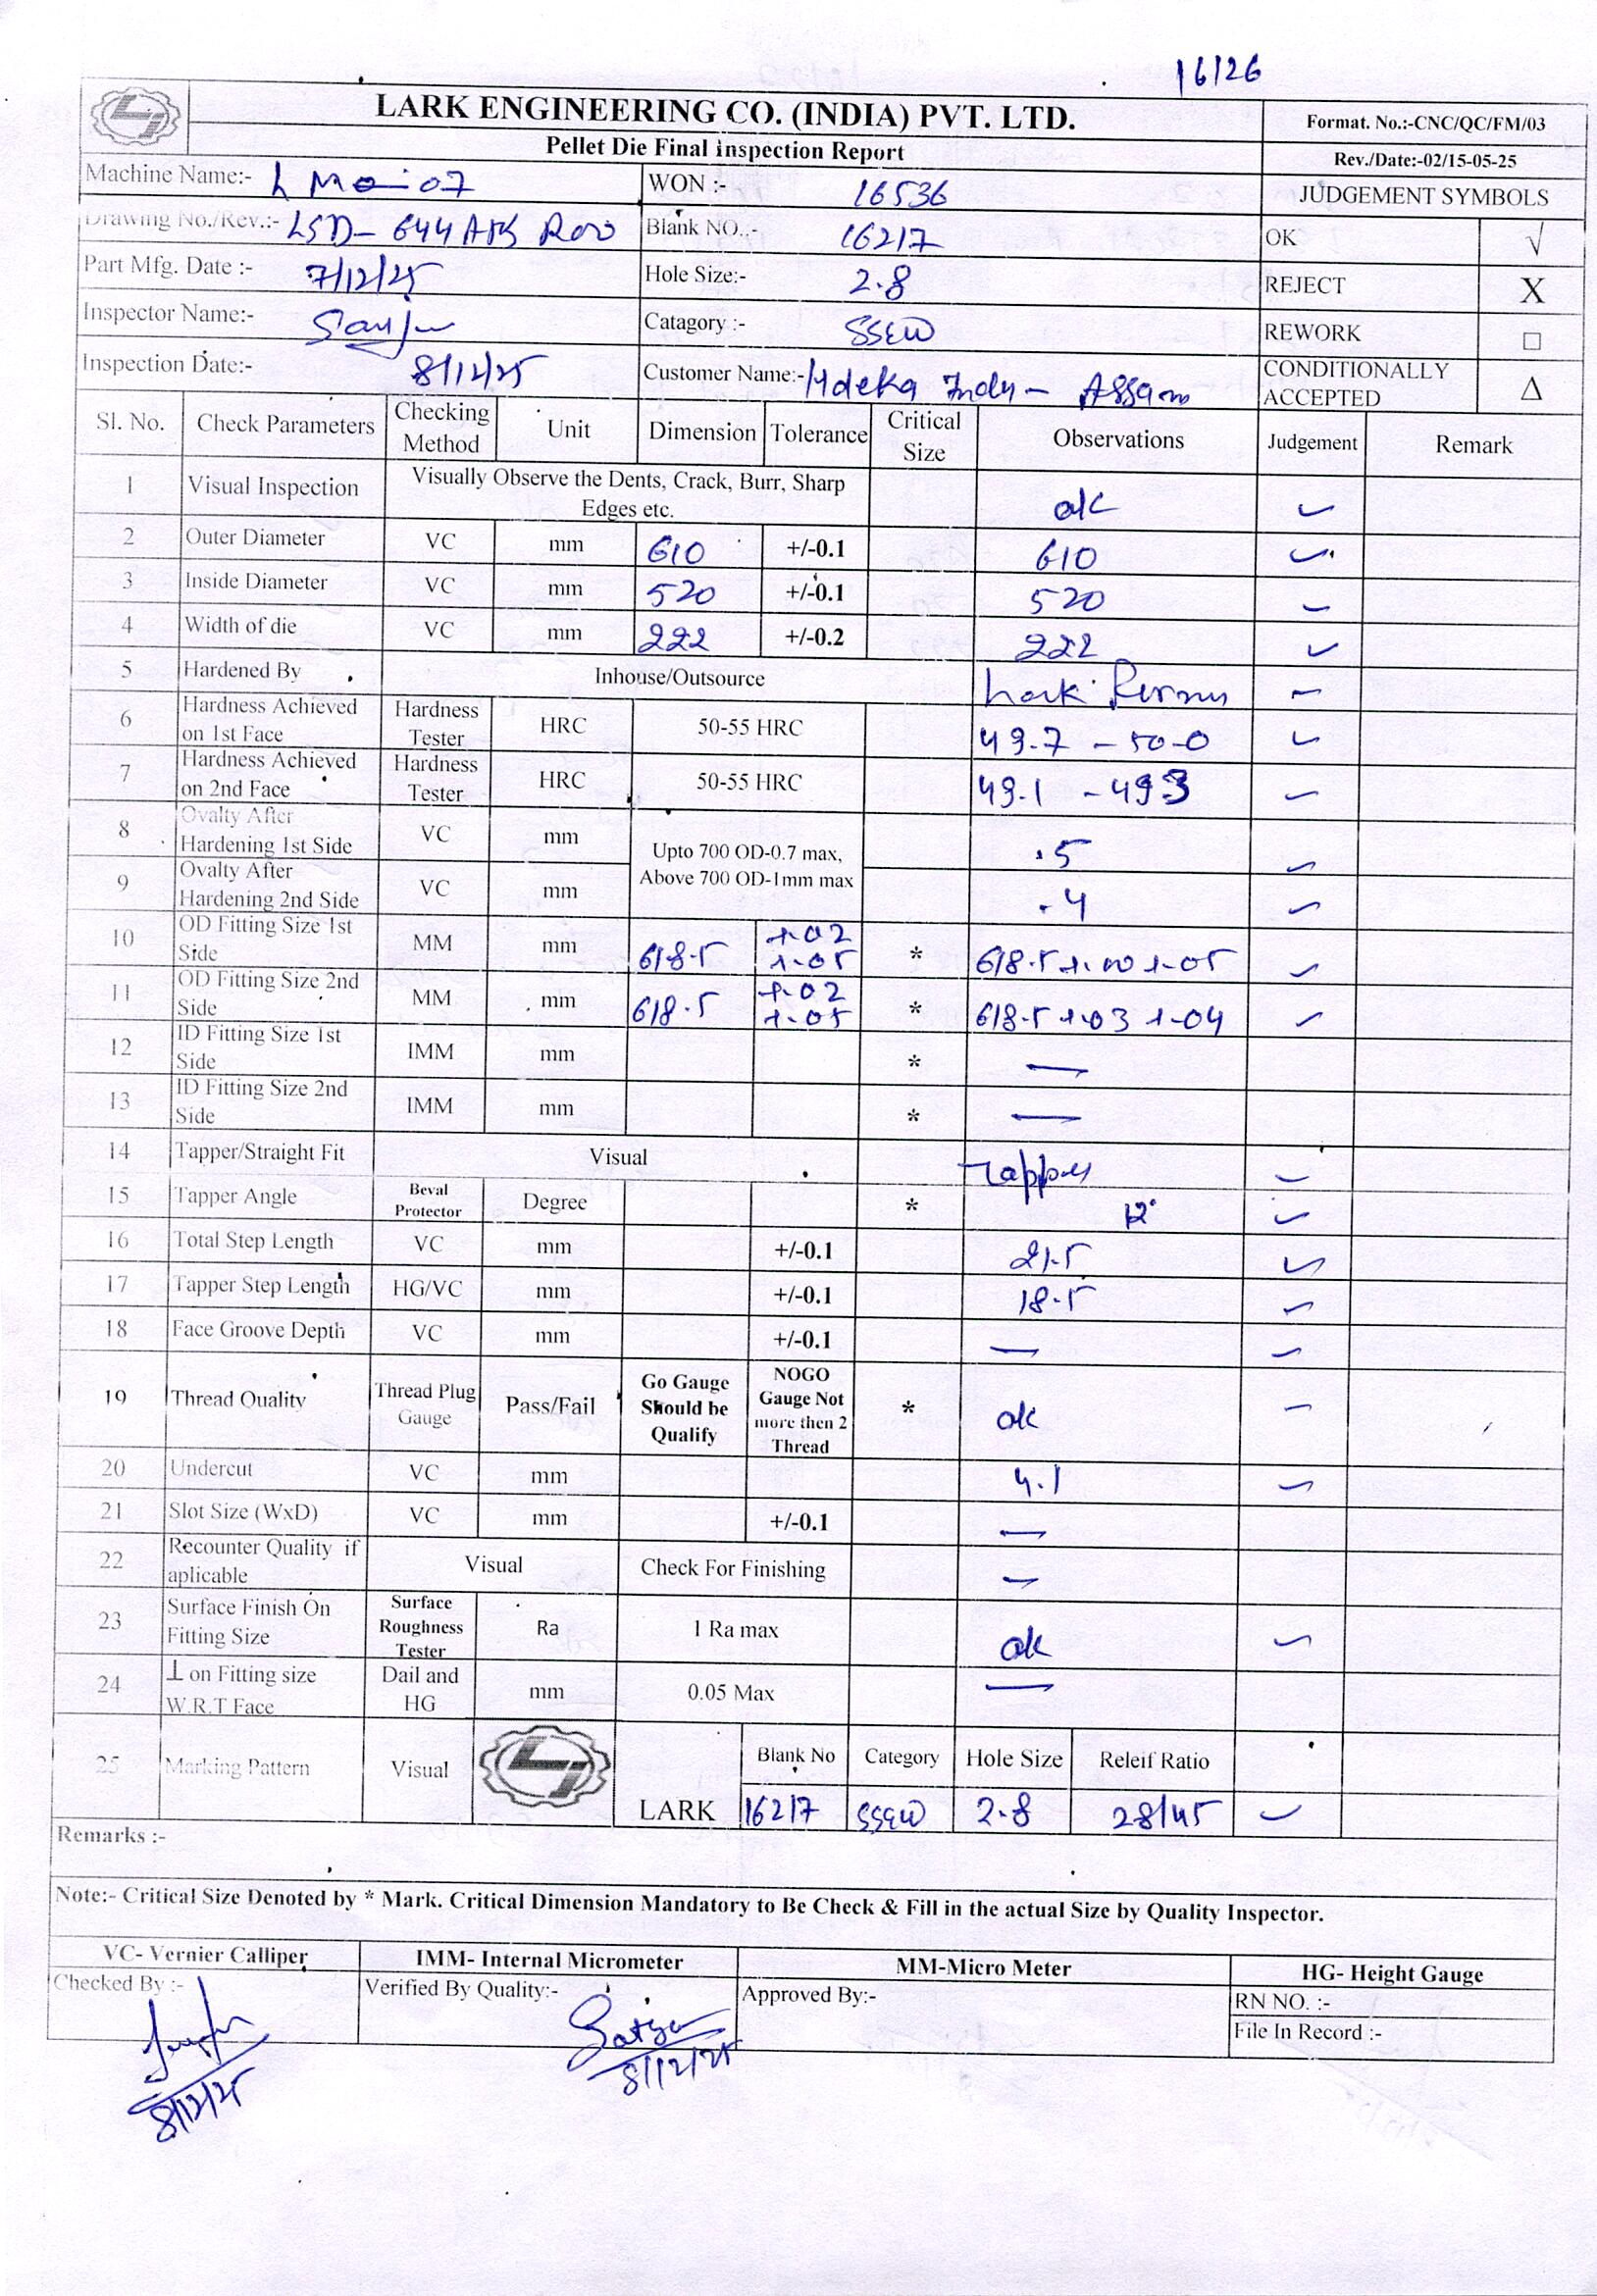 16/26
LARK ENGINEERING CO. (INDIA) PVT. LTD.
Format. No.:-CNC/QC/FM/03
Pellet Die Final Inspection Report
Rev./Date:-02/15-05-25
Machine Name:- WON :- 16536 JUDGEMENT SYMBOLS
Drawing No./Rev.:- LSD- 644 Blank NO..- 16217 OK √
Part Mfg. Date :- 7/12/25 Hole Size:- 2.8 REJECT X
Inspector Name:- Catagory :- SSEW REWORK □
Inspection Date:- 8/12/25 Customer Name:- Assam CONDITIONALLY ACCEPTED Δ
Sl. No. Check Parameters Checking Method Unit Dimension Tolerance Critical Size Observations Judgement Remark
1 Visual Inspection Visually Observe the Dents, Crack, Burr, Sharp Edges etc. ok ✓
2 Outer Diameter VC mm 610 +/-0.1 610 ✓
3 Inside Diameter VC mm 520 +/-0.1 520 ✓
4 Width of die VC mm 222 +/-0.2 222 ✓
5 Hardened By Inhouse/Outsource Lark ✓
6 Hardness Achieved on 1st Face Hardness Tester HRC 50-55 HRC 49.7 - 50.0 ✓
7 Hardness Achieved on 2nd Face Hardness Tester HRC 50-55 HRC 49.1 - 49.3 ✓
8 Ovalty After Hardening 1st Side VC mm Upto 700 OD-0.7 max, Above 700 OD-1mm max .5 ✓
9 Ovalty After Hardening 2nd Side VC mm .4 ✓
10 OD Fitting Size 1st Side MM mm 618.5 +.02 +.05 * 618.5 +.05 ✓
11 OD Fitting Size 2nd Side MM mm 618.5 +.02 +.05 * 618.5 +.03 +.04 ✓
12 ID Fitting Size 1st Side IMM mm * —
13 ID Fitting Size 2nd Side IMM mm * —
14 Tapper/Straight Fit Visual Tapper ✓
15 Tapper Angle Beval Protector Degree * 12° ✓
16 Total Step Length VC mm +/-0.1 21.5 ✓
17 Tapper Step Length HG/VC mm +/-0.1 18.5 ✓
18 Face Groove Depth VC mm +/-0.1 — ✓
19 Thread Quality Thread Plug Gauge Pass/Fail Go Gauge Should be Qualify NOGO Gauge Not more then 2 Thread * ok ✓
20 Undercut VC mm 4.1 ✓
21 Slot Size (WxD) VC mm +/-0.1 —
22 Recounter Quality if aplicable Visual Check For Finishing —
23 Surface Finish On Fitting Size Surface Roughness Tester Ra 1 Ra max ok ✓
24 ⊥ on Fitting size W.R.T Face Dail and HG mm 0.05 Max —
25 Marking Pattern Visual LARK Blank No Category Hole Size Releif Ratio
16217 SSEW 2.8 28/45 ✓
Remarks :-
Note:- Critical Size Denoted by * Mark. Critical Dimension Mandatory to Be Check & Fill in the actual Size by Quality Inspector.
VC- Vernier Calliper IMM- Internal Micrometer MM-Micro Meter HG- Height Gauge
Checked By :- Verified By Quality:- Approved By:- RN NO. :-
File In Record :-
8/12/25
8/12/25